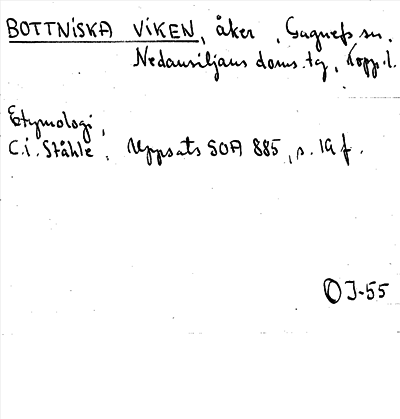 BOTTNISKA VIKEN, åker, Gagnefs sn.
Nedansiljans doms.tg, Kopp.l.
Etymologi,
C.I. Ståhle, Uppsats SOA 885, s. 19 f.
OJ-55